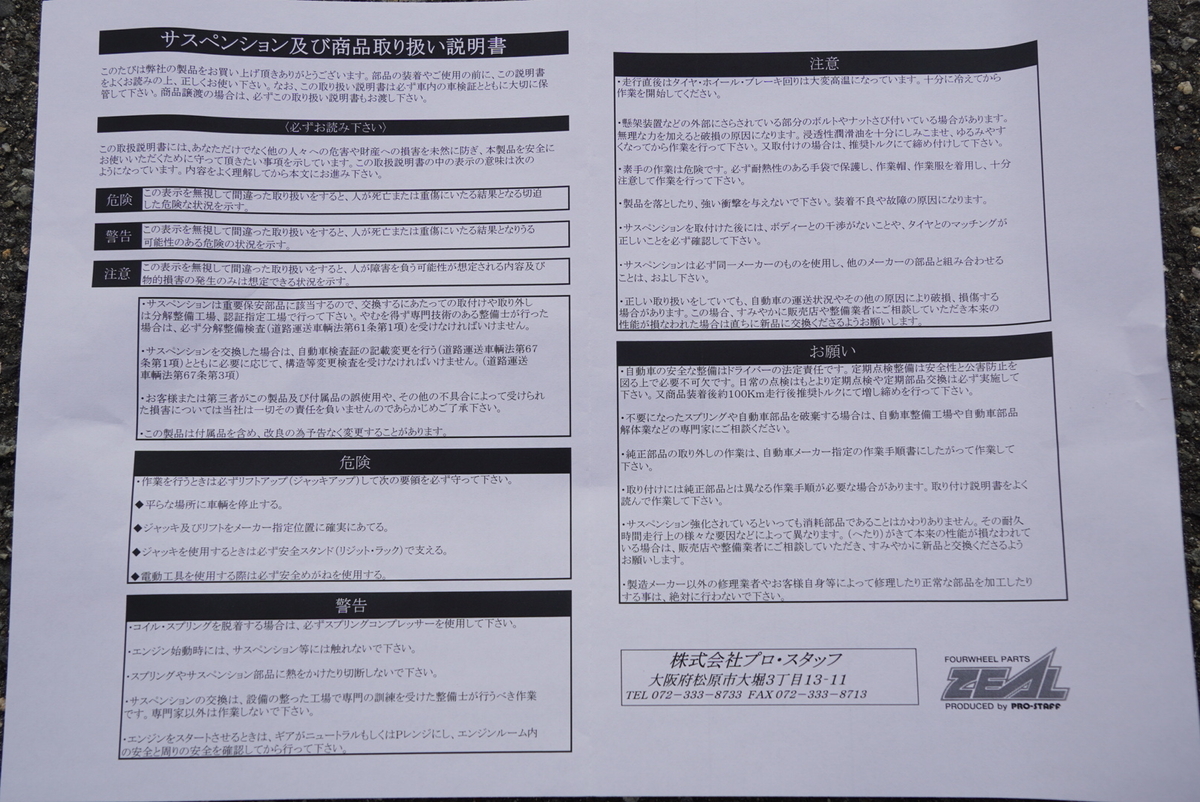 サスペンション及び商品取り扱い説明書
このたびは弊社の製品をお買い上げ頂きありがとうございます。部品の装着やご使用の前に、この説明書
をよくお読みの上、正しくお使い下さい。なお、この取り扱い説明書は必ず車内の車検証とともに大切に保
管して下さい。商品譲渡の場合は、必ずこの取り扱い説明書もお渡し下さい。
〈必ずお読み下さい〉
この取扱説明書には、あなただけでなく他の人々への危害や財産への損害を未然に防ぎ、本製品を安全に
お使いいただくために守って頂きたい事項を示しています。この取扱説明書の中の表示の意味は次の
ようになっています。内容をよく理解してから本文にお進み下さい。
危険
この表示を無視して間違った取り扱いをすると、人が死亡または重傷にいたる結果となる切迫
した危険な状況を示す。
警告
この表示を無視して間違った取り扱いをすると、人が死亡または重傷にいたる結果となりうる
可能性のある危険の状況を示す。
注意
この表示を無視して間違った取り扱いをすると、人が障害を負う可能性が想定される内容及び
物的損害の発生のみは想定できる状況を示す。
・サスペンションは重要保安部品に該当するので、交換するにあたっての取付けや取り外し
は分解整備工場、認証指定工場で行って下さい。やむを得ず専門技術のある整備士が行った
場合は、必ず分解整備検査(道路運送車輌法第61条第1項)を受けなければいけません。
・サスペンションを交換した場合は、自動車検査証の記載変更を行う(道路運送車輌法第67
条第1項)とともに必要に応じて、構造等変更検査を受けなければいけません。(道路運送
車輌法第67条第3項)
・お客様または第三者がこの製品及び付属品の誤使用や、その他の不具合によって受けられ
た損害については当社は一切その責任を負いませんのであらかじめご了承下さい。
・この製品は付属品を含め、改良の為予告なく変更することがあります。
危険
・作業を行うときは必ずリフトアップ(ジャッキアップ)して次の要領を必ず守って下さい。
◆平らな場所に車輌を停止する。
◆ジャッキ及びリフトをメーカー指定位置に確実にあてる。
◆ジャッキを使用するときは必ず安全スタンド(リジット・ラック)で支える。
◆電動工具を使用する際は必ず安全めがねを使用する。
警告
・コイル・スプリングを脱着する場合は、必ずスプリングコンプレッサーを使用して下さい。
・エンジン始動時には、サスペンション等には触れないで下さい。
・スプリングやサスペンション部品に熱をかけたり切断しないで下さい。
・サスペンションの交換は、設備の整った工場で専門の訓練を受けた整備士が行うべき作業
です。専門家以外は作業しないで下さい。
・エンジンをスタートさせるときは、ギアがニュートラルもしくはPレンジにし、エンジンルーム内
の安全と周りの安全を確認してから行って下さい。
注意
・走行直後はタイヤ・ホイール・ブレーキ回りは大変高温になっています。十分に冷えてから
作業を開始してください。
・懸架装置などの外部にさらされている部分のボルトやナットさび付いている場合があります。
無理な力を加えると破損の原因になります。浸透性潤滑油を十分にしみこませ、ゆるみやす
くなってから作業を行って下さい。又取付けの場合は、推奨トルクにて締め付けして下さい。
・素手の作業は危険です。必ず耐熱性のある手袋で保護し、作業帽、作業服を着用し、十分
注意して作業を行って下さい。
・製品を落としたり、強い衝撃を与えないで下さい。装着不良や故障の原因になります。
・サスペンションを取付けた後には、ボディーとの干渉がないことや、タイヤとのマッチングが
正しいことを必ず確認して下さい。
・サスペンションは必ず同一メーカーのものを使用し、他のメーカーの部品と組み合わせる
ことは、およし下さい。
・正しい取り扱いをしていても、自動車の運送状況やその他の原因により破損、損傷する
場合があります。この場合、すみやかに販売店や整備業者にご相談していただき本来の
性能が損なわれた場合は直ちに新品に交換くださるようお願いします。
お願い
・自動車の安全な整備はドライバーの法定責任です。定期点検整備は安全性と公害防止を
図る上で必要不可欠です。日常の点検はもとより定期点検や定期部品交換は必ず実施して
下さい。又商品装着後約100Km走行後推奨トルクにて増し締めを行って下さい。
・不要になったスプリングや自動車部品を破棄する場合は、自動車整備工場や自動車部品
解体業などの専門家にご相談ください。
・純正部品の取り外しの作業は、自動車メーカー指定の作業手順書にしたがって作業して
下さい。
・取り付けには純正部品とは異なる作業手順が必要な場合があります。取り付け説明書をよく
読んで作業して下さい。
・サスペンション強化されているといっても消耗部品であることはかわりありません。その耐久
時間走行上の様々な要因などによって異なります。(へたり)がきて本来の性能が損なわれて
いる場合は、販売店や整備業者にご相談していただき、すみやかに新品と交換くださるよう
お願いします。
・製造メーカー以外の修理業者やお客様自身等によって修理したり正常な部品を加工したり
する事は、絶対に行わないで下さい。
株式会社プロ・スタッフ
大阪府松原市大堀3丁目13-11
TEL 072-333-8733 FAX 072-333-8713
FOURWHEEL PARTS
ZEAL
PRODUCED by PRO-STAFF